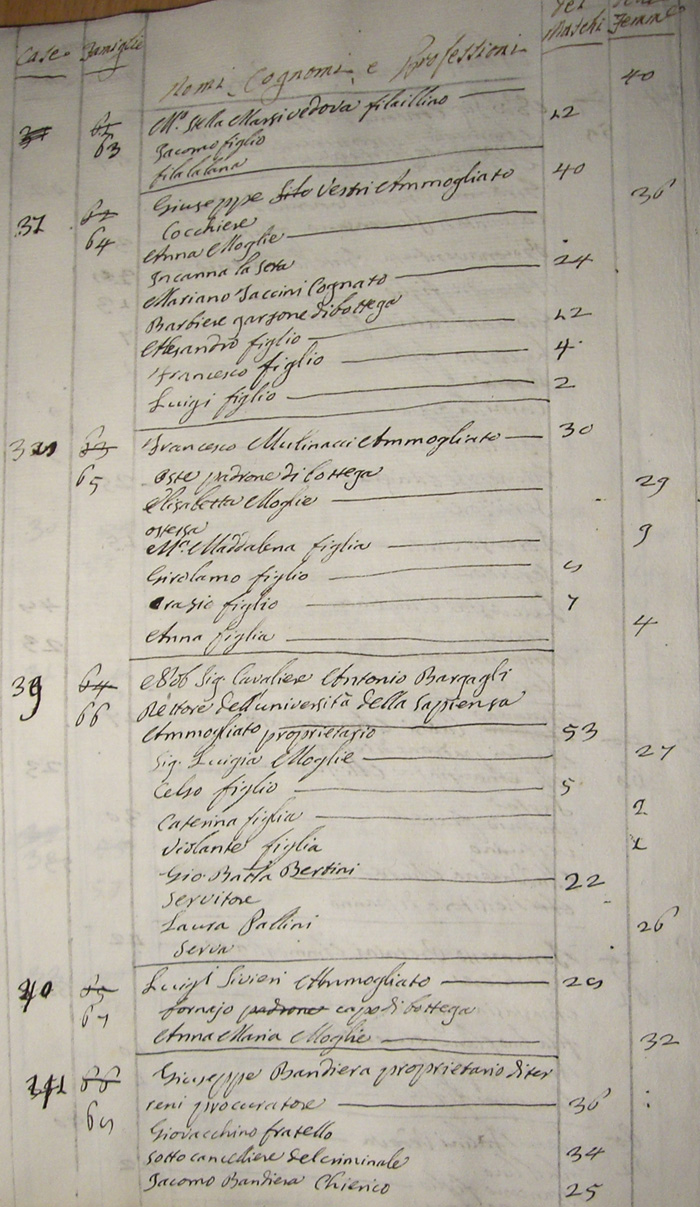 Case Famiglie Nomi, Cognomi, e Professioni Maschi Femmi
40
62 M.ª Stella Marsi vedova fila il lino
63 Giacomo figlio 12
fila la lana
37 Giuseppe Silvestri Ammogliato 40
64 Cocchiere
Anna Moglie 36
Incanna la Seta
Mariano Jaccini Cognato 24
Barbiere garzone di bottega
Alesandro figlio 12
Francesco figlio 4
Luigi figlio 2
63 Francesco Mulinacci Ammogliato 30
65 Oste padrone di bottega
Elisabetta Moglie 29
ostessa
M.ª Maddalena figlia 9
Girolamo figlio
Orazio figlio 7
Anna figlia 4
39 64 Nob Sig. Cavaliere Antonio Bargagli
66 Rettore dell'università della Sapienza
Ammogliato proprietario 53
Sig. Luigia Moglie 27
Celso figlio 5
Caterina figlia 2
Violante figlia 1
Gio. Batta Bertini 22
Servitore
Laura Pallini 26
Serva
40 65 Luigi Sivieri Ammogliato
67 fornajo padrone capo di bottega
Anna Maria Moglie 32
41 66 Giuseppe Bandiera proprietario di ter
reni procuratore 36
Giovacchino fratello
sotto cancelliere del criminale 34
Jacomo Bandiera Chierico 25